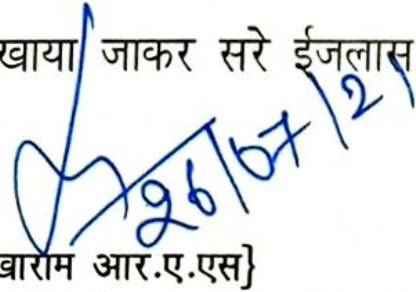 खाया जाकर सरे ईजलास
26/07/21
खाराम आर.ए.एस}